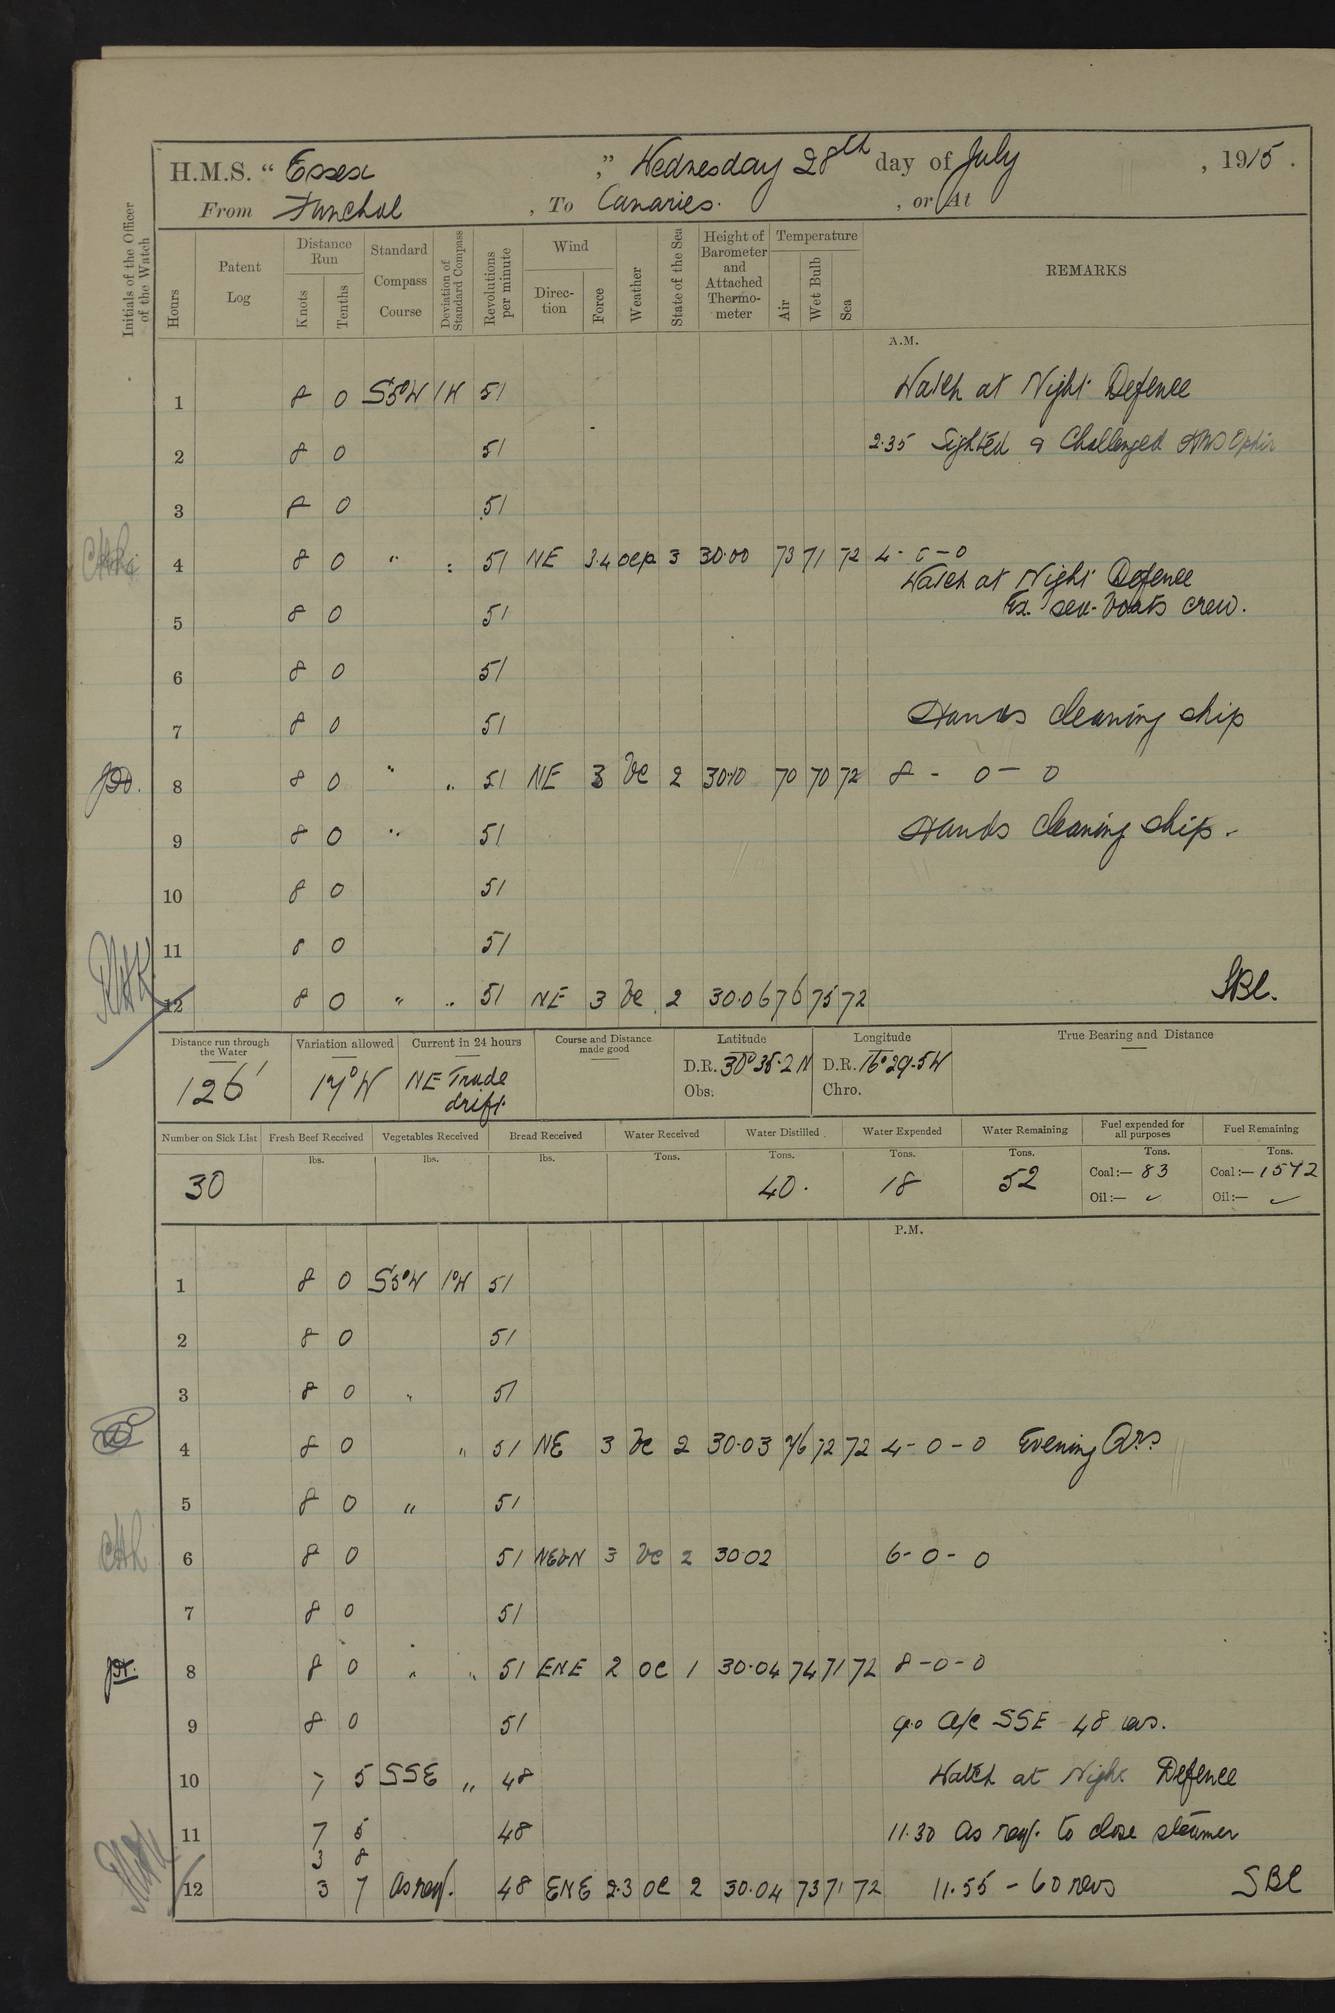 H.M.S. “ Essex ,” Wednesday 28th day of July , 1915 .
From Funchal , To Canaries. , or At
Initials of the Officer of the Watch
Hours Patent Log Distance Run Knots Tenths Standard Compass Course Deviation of Standard Compass Revolutions per minute Wind Direction Force Weather State of the Sea Height of Barometer and Attached Thermometer Temperature Air Wet Bulb Sea REMARKS
A.M.
1 8 0 S5°W 1W 51 Watch at Night Defence
2 8 0 51 2.35 Sighted & Challenged HMS Ophir
3 8 0 51
4 8 0 " " 51 NE 3.4 ocp 3 30.00 73 71 72 4 - 0 - 0
Watch at Night Defence
5 8 0 51 Ex. sea-boats crew.
6 8 0 51
7 8 0 51 Hands cleaning ship
8 8 0 " " 51 NE 3 bc 2 30.10 70 70 72 8 - 0 - 0
9 8 0 " 51 Hands cleaning ship.
10 8 0 51
11 8 0 51
12 8 0 " " 51 NE 3 bc 2 30.06 76 75 72 SBC.
Distance run through the Water Variation allowed Current in 24 hours Course and Distance made good Latitude Longitude True Bearing and Distance
126' 17°W NE Trade drift. D.R. 30° 35.2 N D.R. 16° 29.5 W
Obs. Chro.
Number on Sick List Fresh Beef Received Vegetables Received Bread Received Water Received Water Distilled Water Expended Water Remaining Fuel expended for all purposes Fuel Remaining
lbs. lbs. lbs. Tons. Tons. Tons. Tons. Tons. Tons.
30 40. 18 52 Coal:— 83 Coal:— 1572
Oil:— ✓ Oil:— ✓
P.M.
1 8 0 S5°W 1°W 51
2 8 0 51
3 8 0 " 51
4 8 0 " 51 NE 3 bc 2 30.03 76 72 72 4 - 0 - 0 Evening Qrs
5 8 0 " 51
6 8 0 51 NEbN 3 bc 2 30.02 6 - 0 - 0
7 8 0 51
8 8 0 " " 51 ENE 2 oc 1 30.04 74 71 72 8 - 0 - 0
9 8 0 51 9.0 A/c SSE 48 revs.
10 7 5 SSE " 48 Watch at Night Defence
11 7 5 48 11.30 As req. to close steamer
3 8
12 3 7 As req. 48 ENE 2.3 oc 2 30.04 73 71 72 11.55 - 60 revs SBC